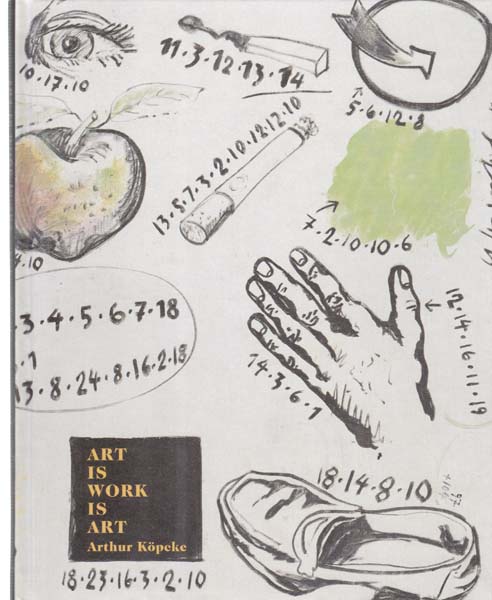 10·17·10
11·3·12·13·14
5·6·12·8
13·8·7·3·2·10·12·12·10
7·2·10·10·6
4·10
3·4·5·6·7·18
·1
13·8·24·8·16·2·18
12·14·16·11·19
14·3·6·1
18·14·8·10
ART
IS
WORK
IS
ART
Arthur Köpcke
18·23·16·3·2·10